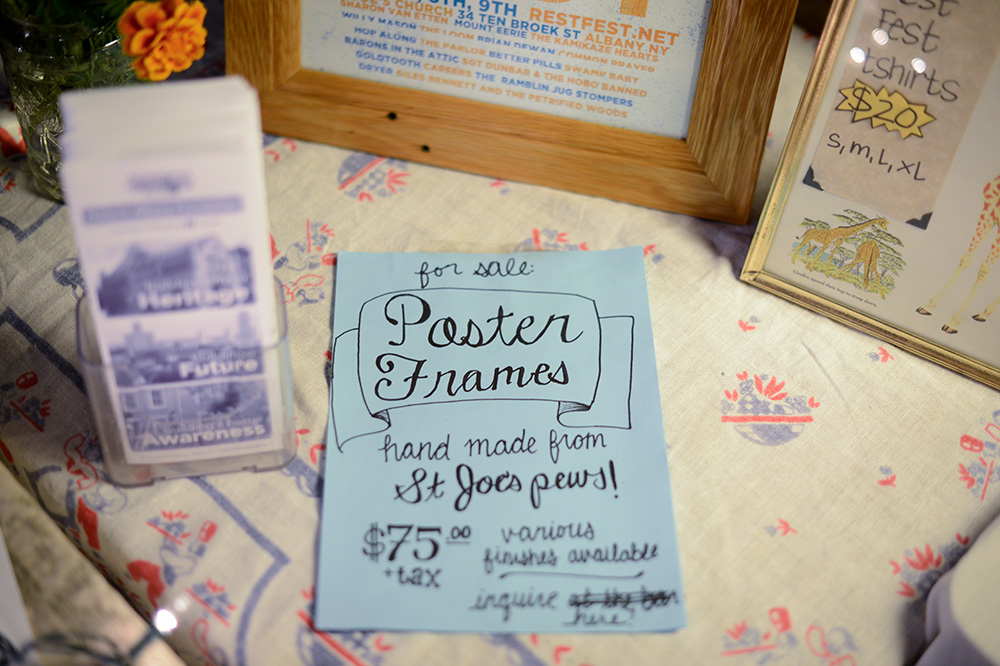 TH, 9TH RESTFEST.NET
'S CHURCH 34 TEN BROEK ST ALBANY NY
SHARON VAN ETTEN MOUNT EERIE THE KAMIKAZE HEARTS
WILLY MASON THE LOOM BRIAN DEWAN COMMON PRAYER
HOP ALONG THE PARLOR BETTER PILLS SWAMP BABY
BARONS IN THE ATTIC SGT DUNBAR & THE HOBO BANNED
GOLDTOOTH CAREERS THE RAMBLIN JUG STOMPERS
DRYER GILES BENNETT AND THE PETRIFIED WOODS
est
Fest
tshirts
$20
S, M, L, XL
Giraffes spread their legs to stoop down.
Heritage
Future
Awareness
for sale:
Poster
Frames
hand made from
St Joe's pews!
$75.00
+tax
various
finishes available
inquire at the bar
here!